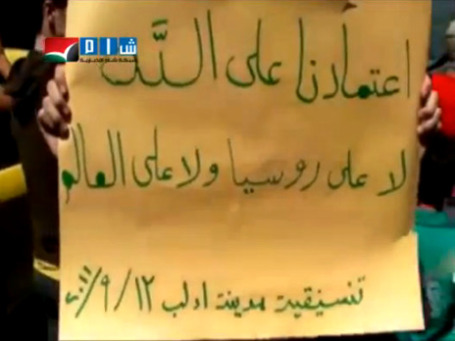 شام
شبكة شام الإخبارية
اعتمادنا على الله
لا على روسيا ولا على العالم
تنسيقية مدينة ادلب ١٢/٩/٢٠١١